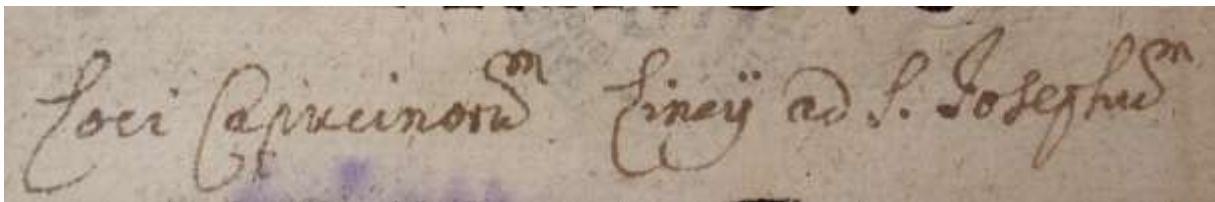 Loci Capucinorum Lincÿ ad S. Josephum